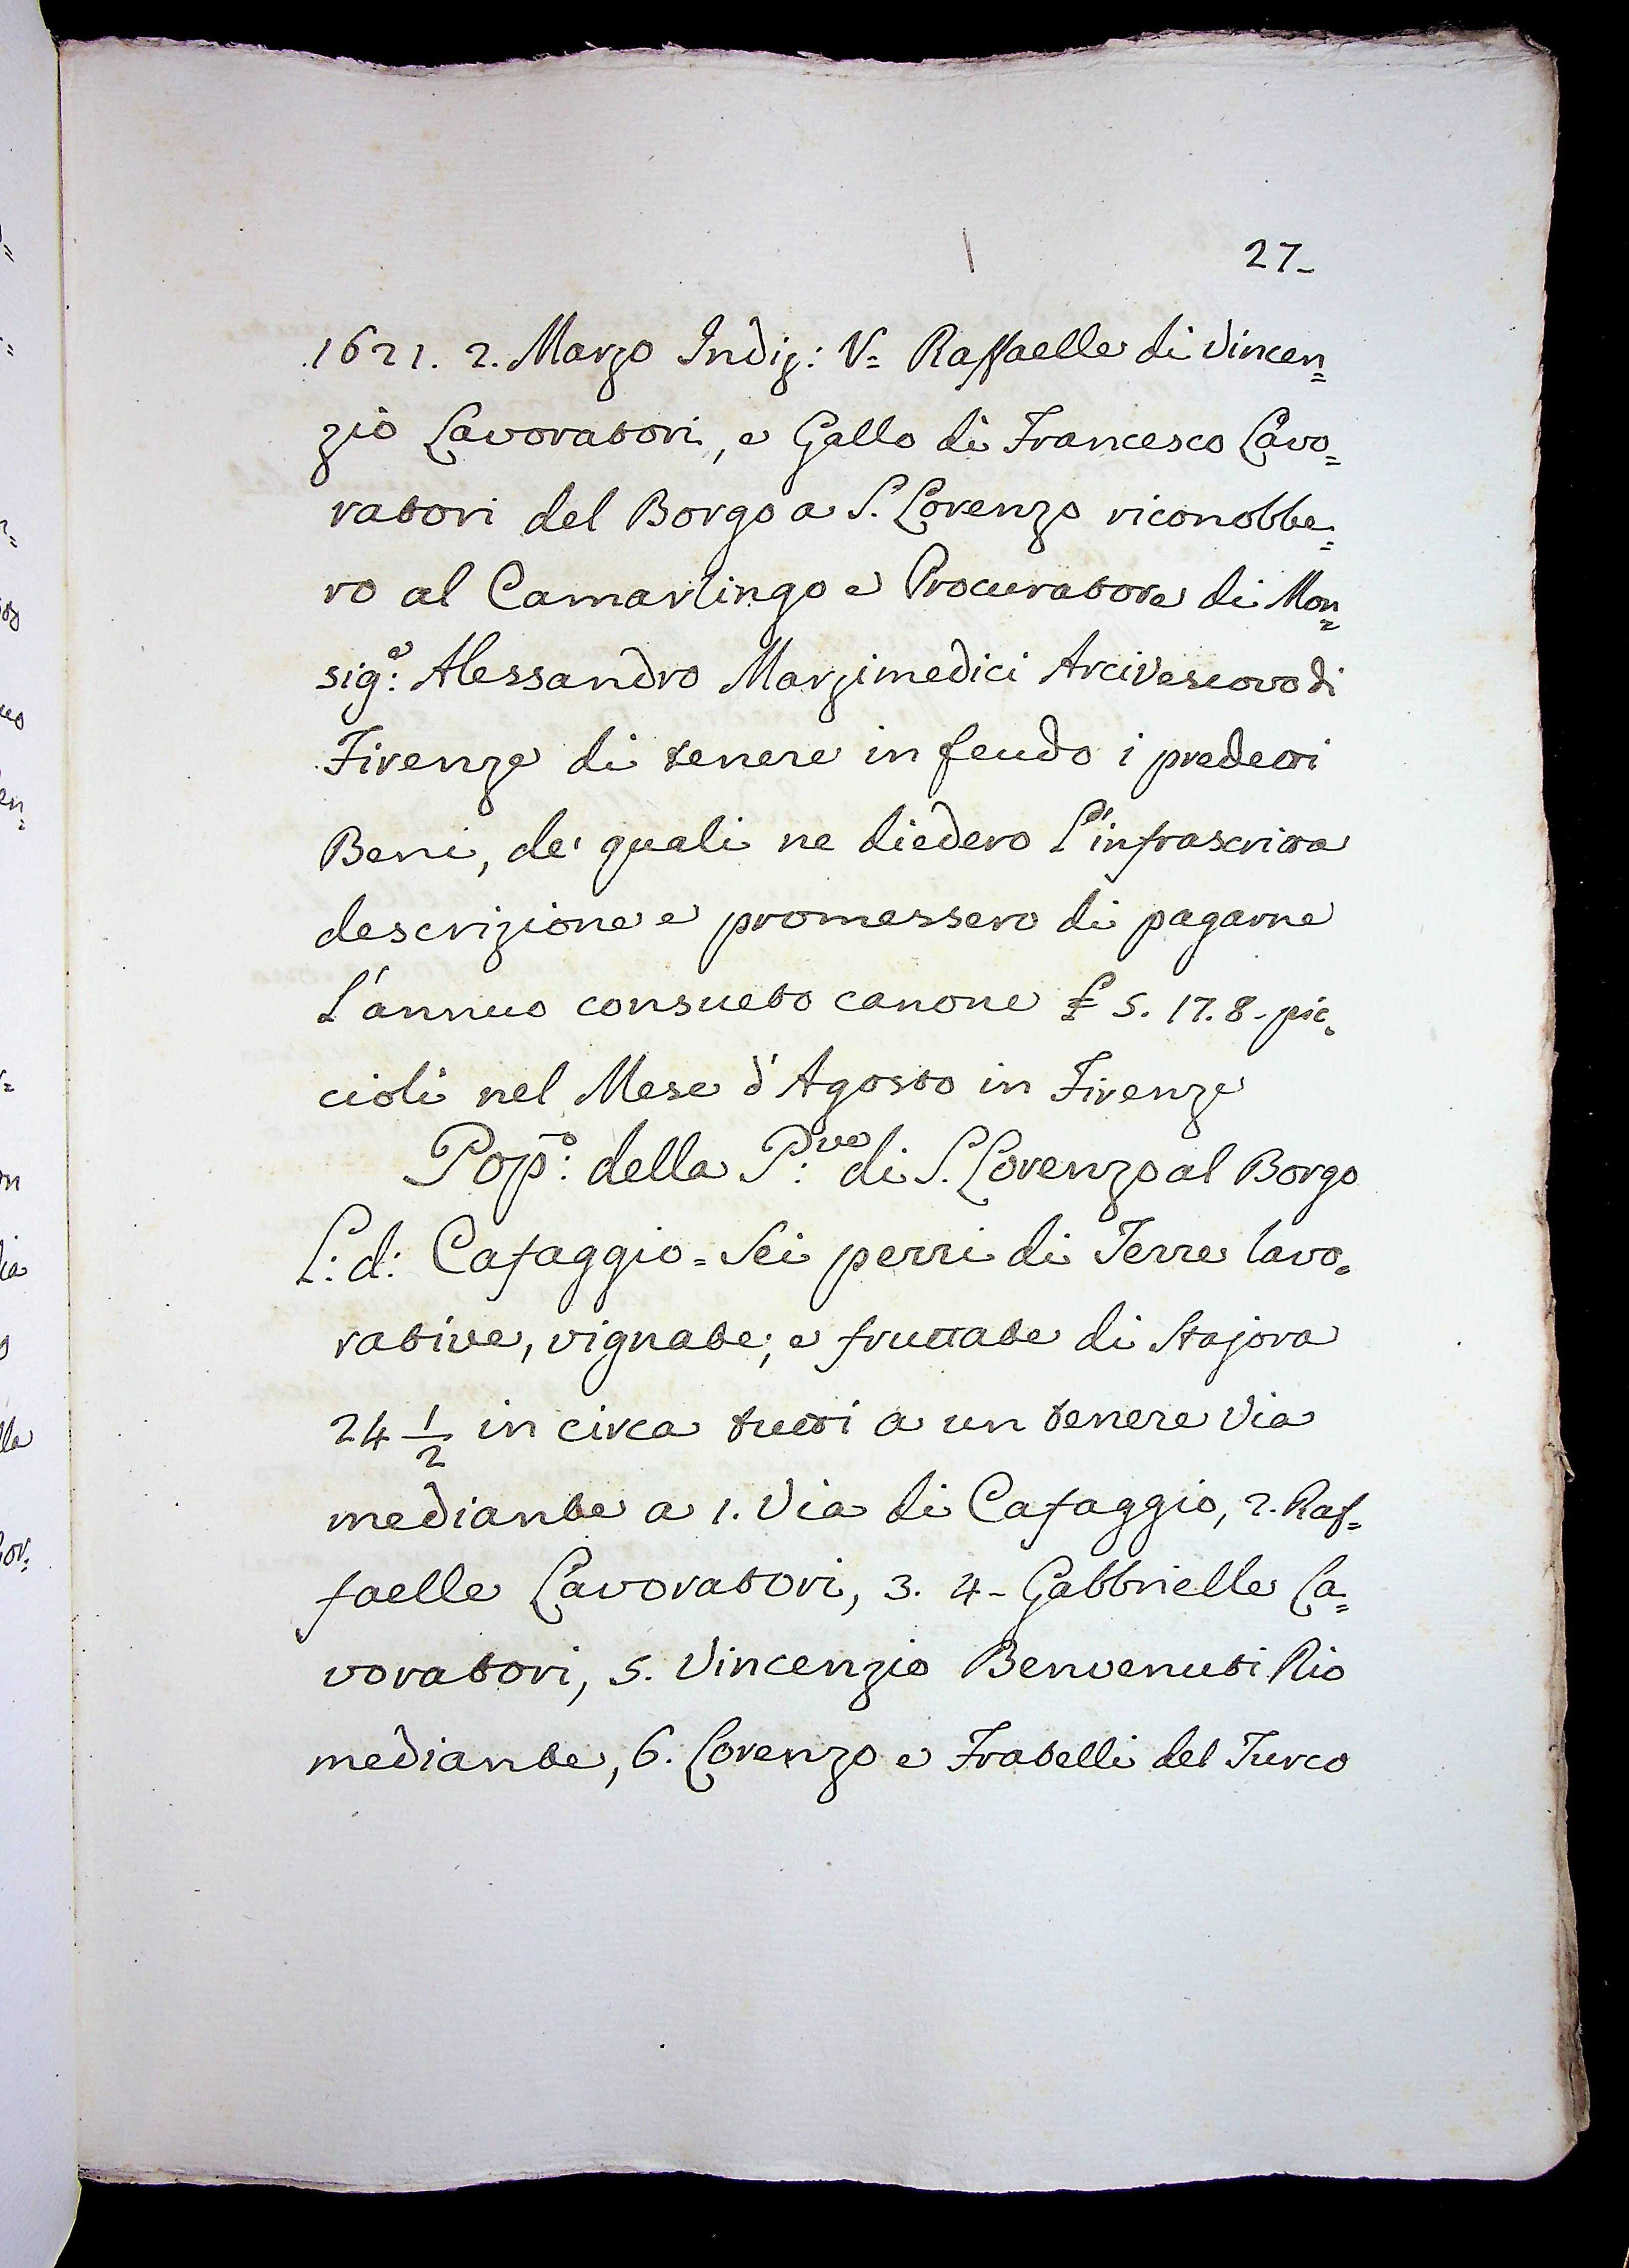 27-
1621. 2. Marzo Indiz: V= Raffaelle di Vincen=
zio Lavoratori, e Gallo di Francesco Lavo=
ratori del Borgo a S. Lorenzo riconobbe=
ro al Camarlingo e Procuratore di Mon=
sig:e Alessandro Marzimedici Arcivescovo di
Firenze di tenere in feudo i predetti
Beni, de' quali ne diedero l'infrascritta
descrizione e promessero di pagarne
l'annuo consueto canone £ 5. 17. 8 - pic=
cioli nel Mese d'Agosto in Firenze
Pop:o della P:ve di S. Lorenzo al Borgo
L: d: Cafaggio = Sei pezzi di Terre lavo=
rative, vignate, e fruttate di Stajora
24 1/2 in circa tutti a un tenere Via
mediante a 1. Via di Cafaggio, 2. Raf=
faelle Lavoratori, 3. 4 - Gabbrielle La=
voratori, 5. Vincenzio Benvenuti Rio
mediante, 6. Lorenzo e Fratelli del Turco